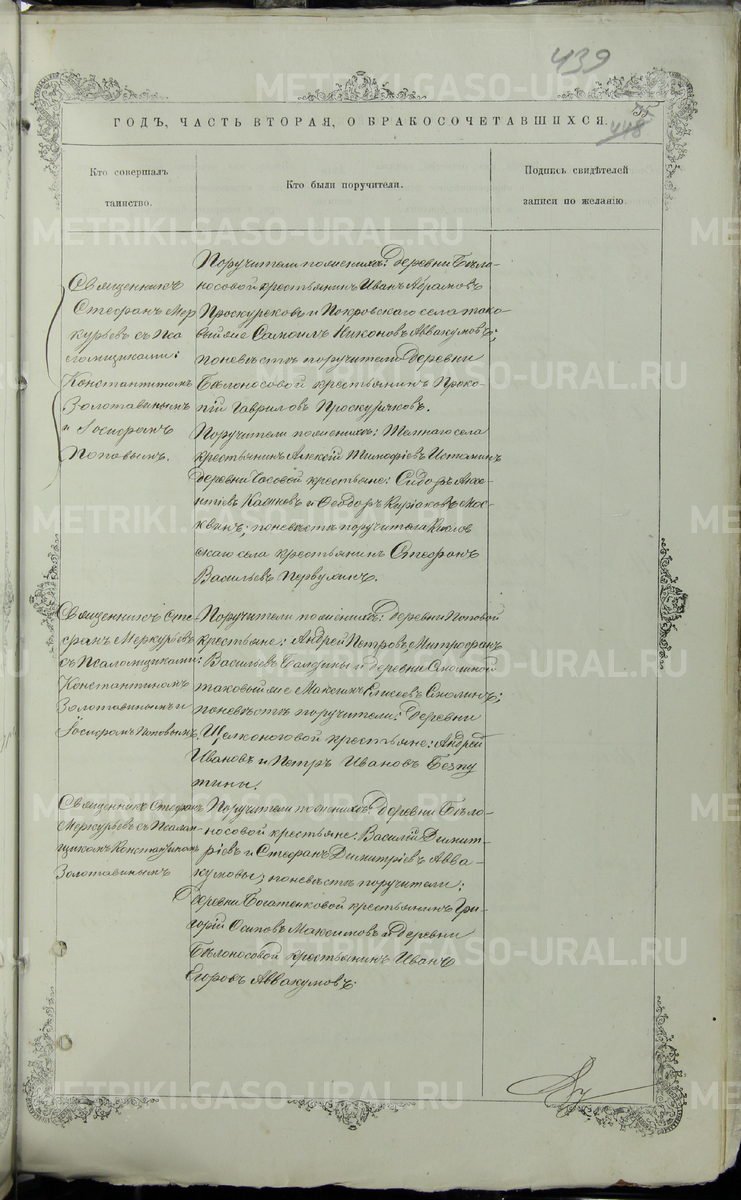 439
35
448
ГОДЪ, ЧАСТЬ ВТОРАЯ, О БРАКОСОЧЕТАВШИХСЯ.
Кто совершалъ
таинство.
Кто были поручители.
Подпись свидѣтелей
записи по желанію.
Священникъ
Стефанъ Мер
курьевъ съ Пса
ломщиками:
Константиномъ
Золотавинымъ
и Іосифомъ
Поповымъ.
Поручители по женихѣ: деревни Бѣло-
носовой крестьянинъ Иванъ Абрамовъ
Проскуряковъ и Покровскаго села тако
вый же Самоилъ Никоновъ Аввакумовъ;
по невѣстѣ поручители деревни
Бѣлоносовой крестьянинъ Проко-
пій Гавриловъ Проскуряковъ.
Поручители по женихѣ: Темнаго села
крестьянинъ Алексій Тимофіевъ
деревни Часовой крестьяне: Сидоръ
и Ѳеодоръ Киріаковъ Мос-
квинъ; по невѣстѣ поручители
скаго села крестьянинъ Стефанъ
Васильевъ Первушинъ.
Священникъ Сте
фанъ Меркурьевъ
съ Псаломщиками:
Константиномъ
Золотавинымъ и
Іосифомъ Поповымъ.
Поручители по женихѣ: деревни Поповой
крестьяне: Андрей Петровъ Митрофанъ
Васильевъ Балдины и деревни Смолиной
таковый же Максимъ Елисеевъ Смолинъ;
по невѣстѣ поручители: деревни
Щелконоговой крестьяне: Андрей
Ивановъ и Петръ Ивановъ Безпу
тины.
Священникъ Стефанъ
Меркурьевъ съ Псалом-
щикомъ Константиномъ
Золотавинымъ
Поручители по женихѣ: деревни Бѣло-
носовой крестьяне: Василій Димит-
ріевъ и Стефанъ Димитріевъ Авва-
кумовы; по невѣстѣ поручители:
деревни Богатенковой крестьянинъ Гри-
горій Осиповъ Максимовъ и деревни
Бѣлоносовой крестьянинъ Иванъ
Егоровъ Аввакумовъ.
METRIKI.GASO-URAL.RU